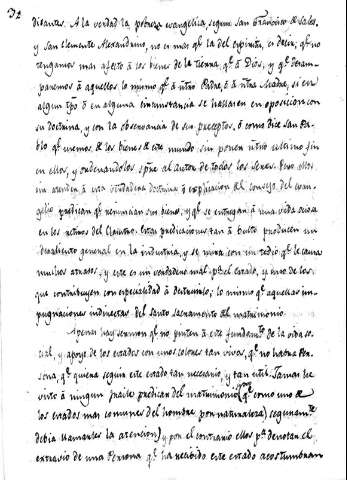 32
distantes. A la verdad la pobreza evangelica, segun San Francisco de Sales,
y San Clemente Alexandrino, no es mas qe. la del espiritu, es decir; qe. no
tengamos mas afecto á los bienes de la tierra, qe. á Dios, y qe. desam-
paremos á aquellos lo mismo qe. á ntro. Padre, ó á ntra. Madre, si en
algun tpo. ó en alguna circunstancia se hallaren en oposicion con
su doctrina, y con la observancia de sus preceptos, ó como dice San Pa-
blo qe. usemos de los bienes de este mundo sin poner ntro. ultimo fin
en ellos, y ordenandolos spre. al autor de todos los seres. Pero ellos
sin atender á esta verdadera doctrina ó explicacion del consejo del evan-
gelio predican qe. renuncian sus bienes, y qe. se entreguen á una vida ociosa
en los retiros del Claustro. Estas predicaciones tan á bulto producen un
desaliento general en la industria, y se mira con un tedio qe. le causa
muchos atrasos; y este es un verdadero mal pa. el estado, y uno de los
que contribuyen con especialidad á destruirlo; lo mismo qe. aquellas im-
pugnaciones indirectas del santo sacramento del matrimonio.
Apenas hay sermon qe. no pinten á este fundamto. de la vida so-
cial, y apoyo de los estados con unos colores tan vivos, qe. no habrá Per-
sona, qe. quiera seguir este estado tan necesario, y tan util. Jamas he
visto á ningun fraile predicar del matrimonio (qe. como uno de
los estados mas comunes del hombre por naturaleza) seguramte.
debia llamarles la atencion) y por el contrario ellos pa. denotar el
extravio de una Persona qe. ha recibido este estado acostumbran